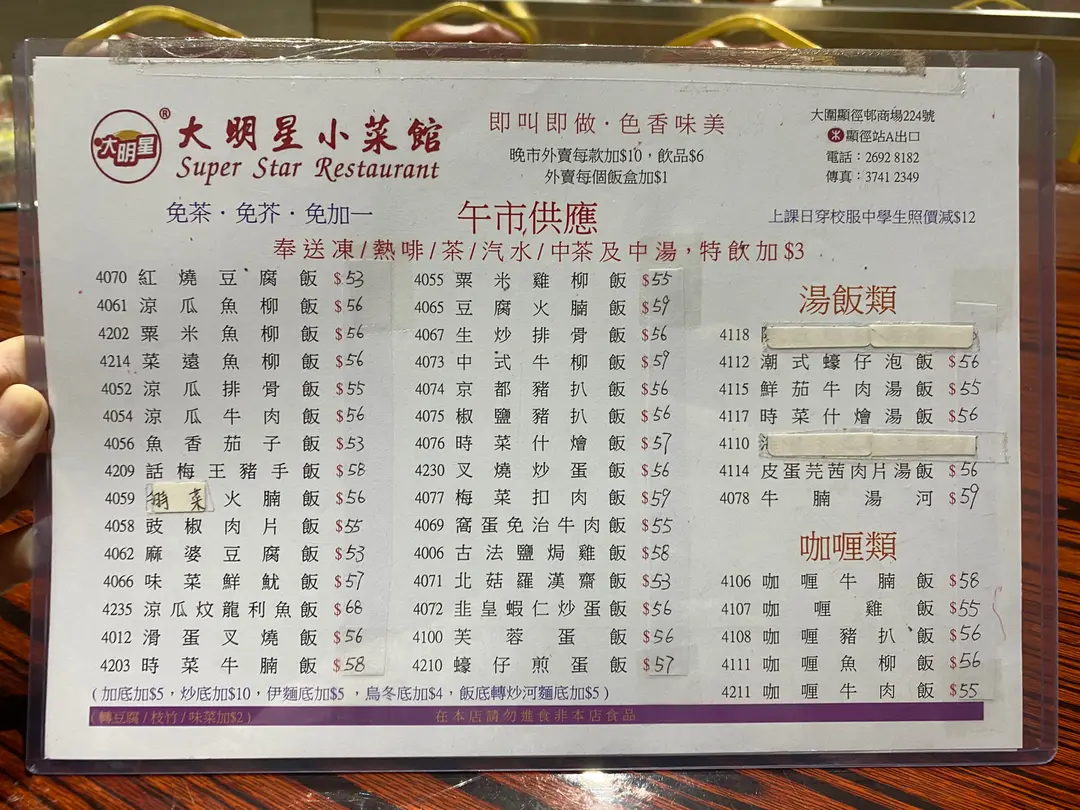 大明星
®
大明星小菜館
Super Star Restaurant
即叫即做·色香味美
晚市外賣每款加$10，飲品$6
外賣每個飯盒加$1
大圍顯徑邨商場224號
顯徑站A出口
電話：2692 8182
傳真：3741 2349
免茶·免芥·免加一
午市供應
上課日穿校服中學生照價減$12
奉送凍/熱啡/茶/汽水/中茶及中湯，特飲加$3
4070 紅燒豆腐飯 $53
4061 涼瓜魚柳飯 $56
4202 粟米魚柳飯 $56
4214 菜遠魚柳飯 $56
4052 涼瓜排骨飯 $55
4054 涼瓜牛肉飯 $56
4056 魚香茄子飯 $53
4209 話梅王豬手飯 $58
4059 菜火腩飯 $56
4058 豉椒肉片飯 $55
4062 麻婆豆腐飯 $53
4066 味菜鮮魷飯 $57
4235 涼瓜炆龍利魚飯 $68
4012 滑蛋叉燒飯 $56
4203 時菜牛腩飯 $58
4055 粟米雞柳飯 $55
4065 豆腐火腩飯 $59
4067 生炒排骨飯 $56
4073 中式牛柳飯 $59
4074 京都豬扒飯 $56
4075 椒鹽豬扒飯 $56
4076 時菜什燴飯 $57
4230 叉燒炒蛋飯 $56
4077 梅菜扣肉飯 $59
4069 窩蛋免治牛肉飯 $55
4006 古法鹽焗雞飯 $58
4071 北菇羅漢齋飯 $53
4072 韭皇蝦仁炒蛋飯 $56
4100 芙蓉蛋飯 $56
4210 蠔仔煎蛋飯 $57
湯飯類
4118
4112 潮式蠔仔泡飯 $56
4115 鮮茄牛肉湯飯 $55
4117 時菜什燴湯飯 $56
4110
4114 皮蛋芫茜肉片湯飯 $56
4078 牛腩湯河 $59
咖喱類
4106 咖喱牛腩飯 $58
4107 咖喱雞飯 $55
4108 咖喱豬扒飯 $56
4111 咖喱魚柳飯 $56
4211 咖喱牛肉飯 $55
（加底加$5，炒底加$10，伊麵底加$5，烏冬底加$4，飯底轉炒河麵底加$5）
（轉豆腐/枝竹/味菜加$2）
在本店請勿進食非本店食品